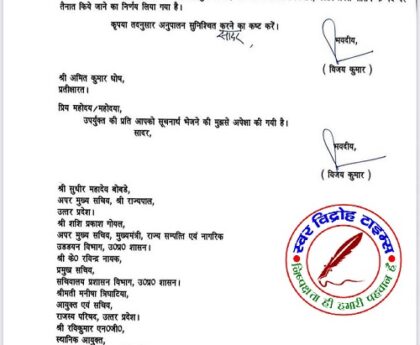 तैनात किये जाने का निर्णय लिया गया है।
कृपया तदनुसार अनुपालन सुनिश्चित करने का कष्ट करें।
सादर
भवदीय,
( विजय कुमार )
श्री अमित कुमार घोष,
प्रतीक्षारत।
प्रिय महोदय/महोदया,
उपर्युक्त की प्रति आपको सूचनार्थ भेजने की मुझसे अपेक्षा की गयी है।
सादर,
भवदीय,
( विजय कुमार )
श्री सुधीर महादेव बोबडे,
अपर मुख्य सचिव, श्री राज्यपाल,
उत्तर प्रदेश।
श्री शशि प्रकाश गोयल,
अपर मुख्य सचिव, मुख्यमंत्री, राज्य सम्पत्ति एवं नागरिक
उड्डयन विभाग, उ0प्र0 शासन।
श्री के0 रविन्द्र नायक,
प्रमुख सचिव,
सचिवालय प्रशासन विभाग, उ0प्र0 शासन।
श्रीमती मनीषा त्रिघाटिया,
आयुक्त एवं सचिव,
राजस्व परिषद, उत्तर प्रदेश।
श्री रविकुमार एन0जी0,
स्थानिक आयुक्त,
स्वर विद्रोह टाइम्स
निष्पक्षता ही हमारी पहचान है